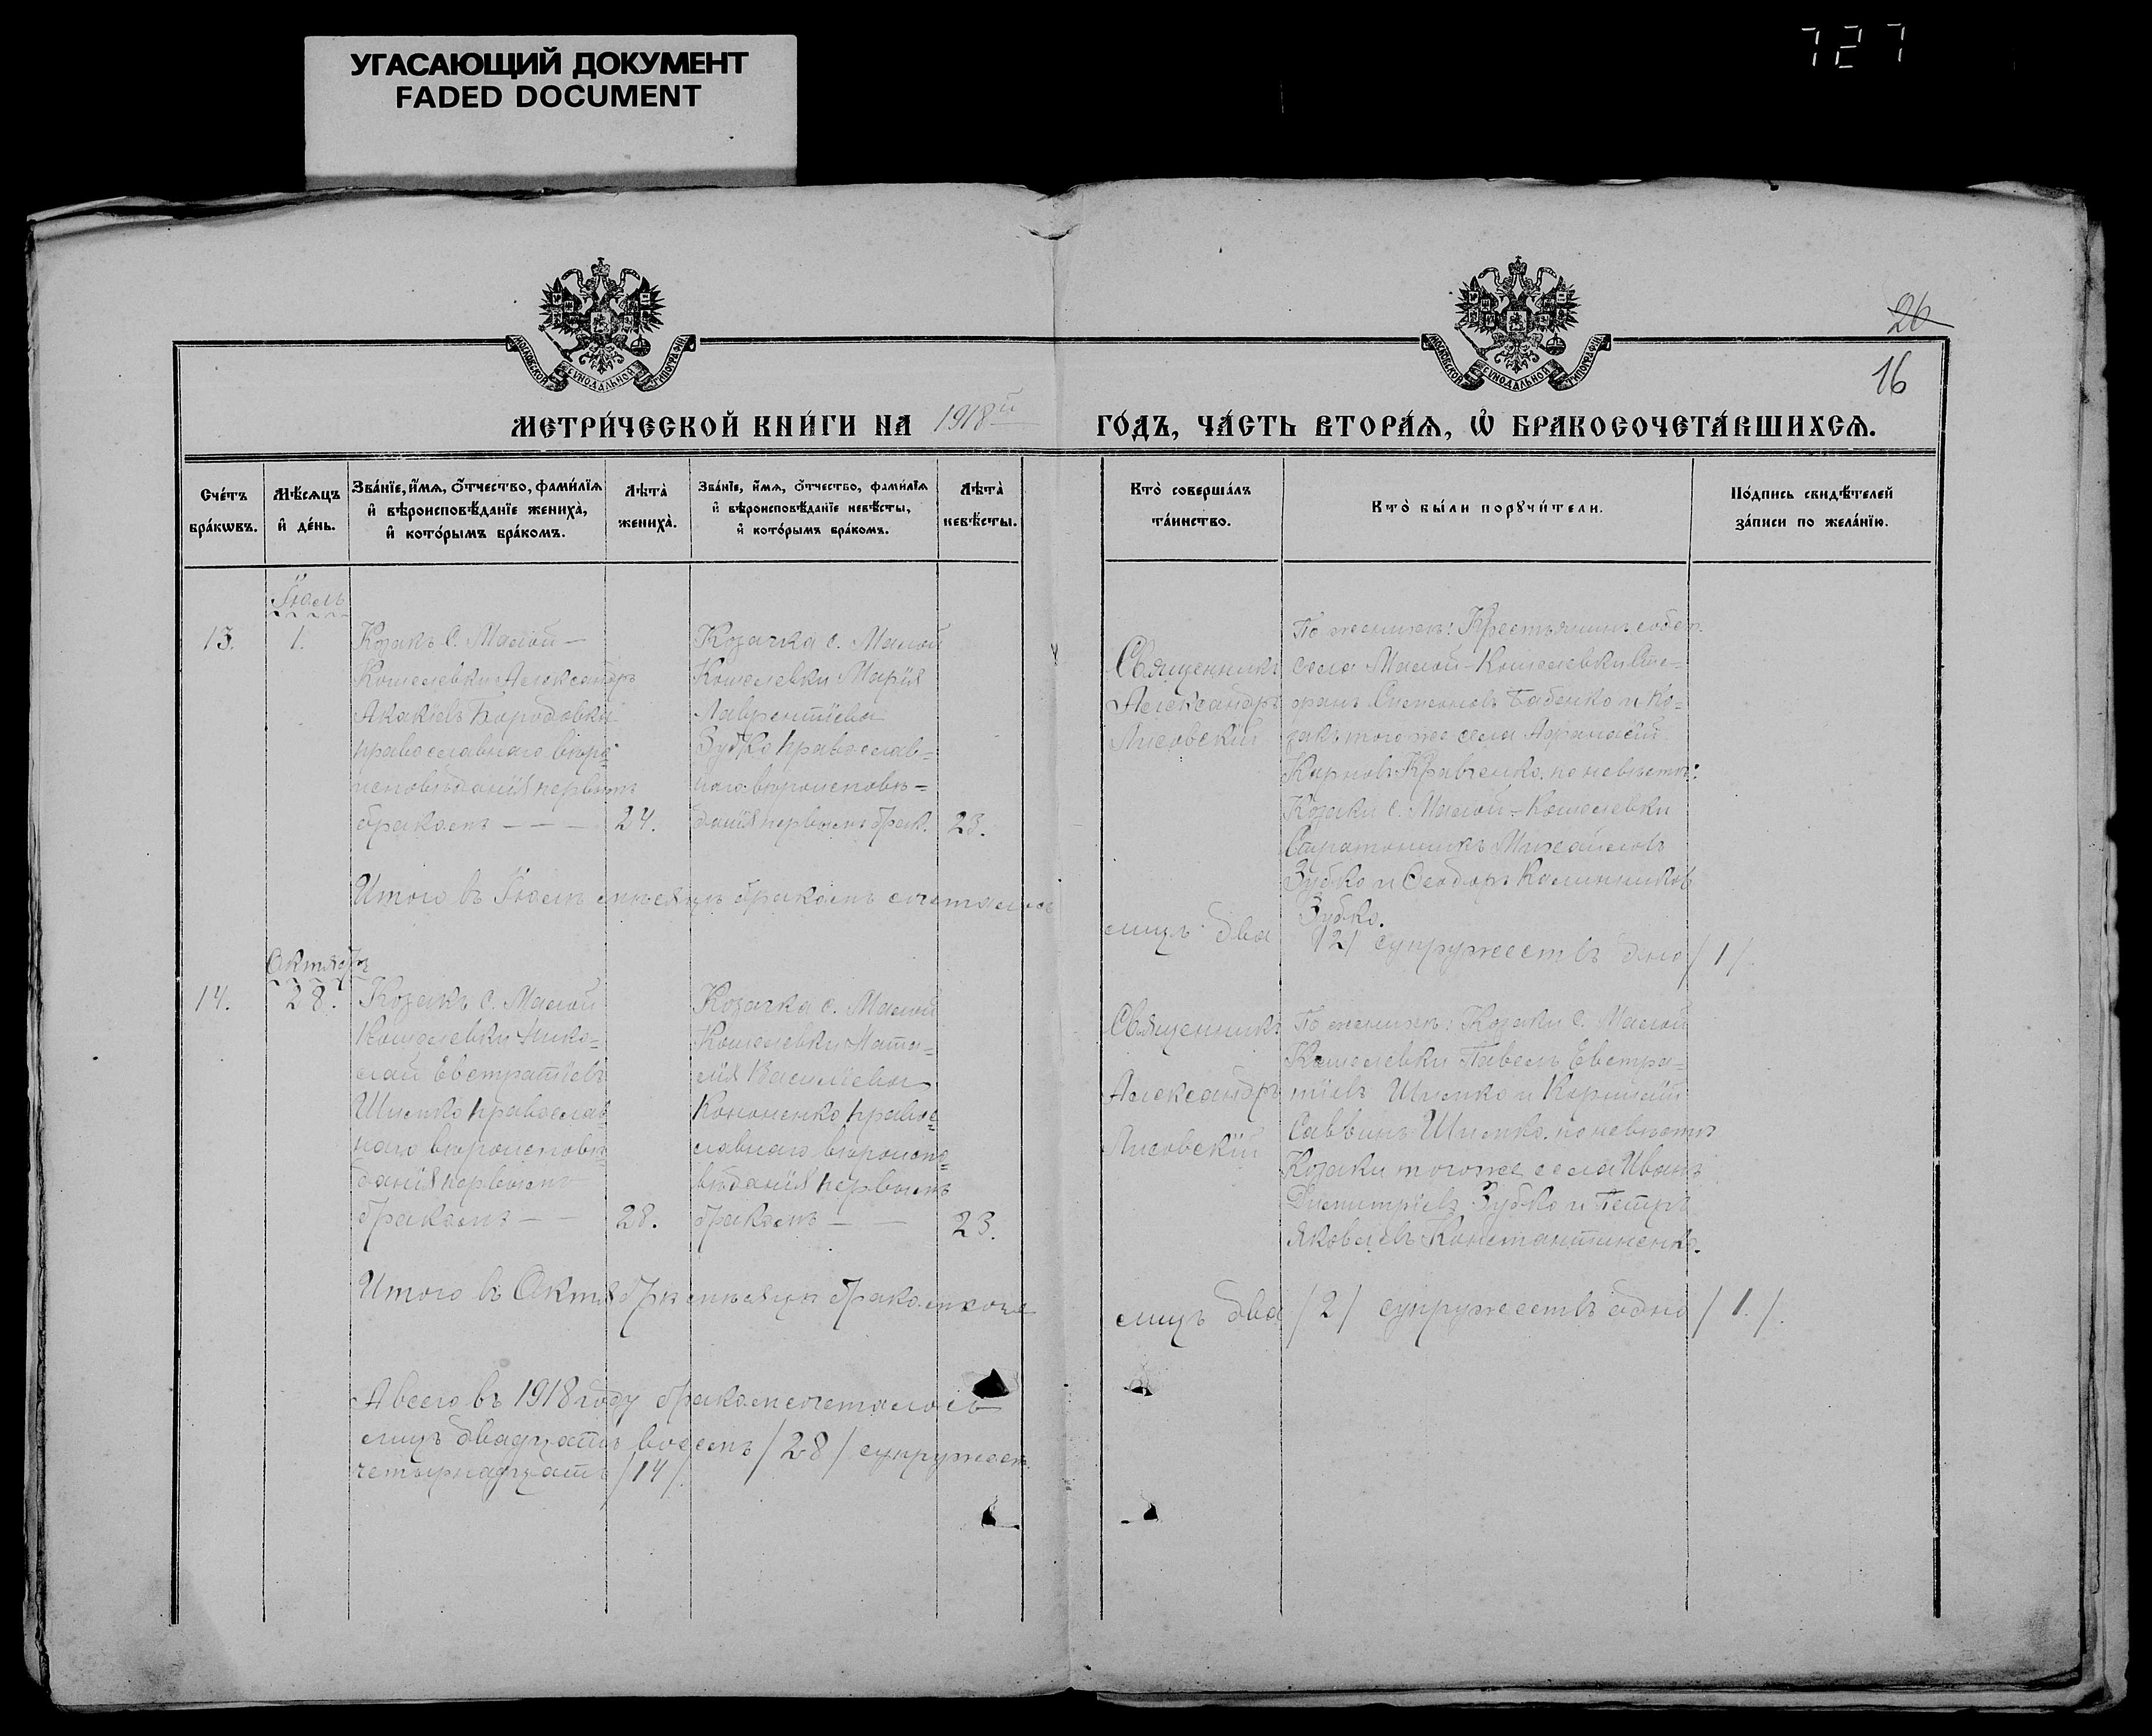 УГАСАЮЩИЙ ДОКУМЕНТ
FADED DOCUMENT
727
26
16
МОСКОВСКОЙ СѴНОДАЛЬНОЙ ТИПОГРАФІИ
МОСКОВСКОЙ СѴНОДАЛЬНОЙ ТИПОГРАФІИ
МЕТРИ́ЧЕСКОЙ КНИ́ГИ НА 1918й ГО́ДЪ, ЧА́СТЬ ВТОРА́Ѧ, Ѽ БРАКОСОЧЕТА́ВШИХСѦ.
Сче́тъ бра́кѡвъ.
Мѣ́сѧцъ и҆ де́нь.
Зва́нїе, и҆́мѧ, ѻ҆́тчество, фами́лїѧ и҆ вѣроисповѣ́данїе жениха̀, и҆ кото́рымъ бра́комъ.
Лѣта̀ жениха̀.
Зва́нїе, и҆́мѧ, ѻ҆́тчество, фами́лїѧ и҆ вѣроисповѣ́данїе невѣ́сты, и҆ кото́рымъ бра́комъ.
Лѣта̀ невѣ́сты.
Кто̀ соверша́лъ та́инство.
Кто̀ бы́ли порꙋчи́тели.
По́дпись свидѣ́телей за́писи по жела́нїю.
Іюль
13.
1.
Козакъ с. Малой-
Кошелевки Александръ
Акакіевъ Бородавка
православнаго вѣро=
исповѣданія первымъ
бракомъ — — —
24.
Козачка с. Малой
Кошелевки Марія
Лаврентіева
Зубко православ=
наго вѣроисповѣ=
данія первымъ брак.
23.
Священникъ
Александръ
Лисовскій
По женихѣ: Крестьянинъ собст.
села Малой-Кошелевки Сте=
фанъ Симеоновъ Бабенко и Ко=
закъ того же села Афанасій
Карповъ Кравченко. по невѣстѣ:
Козаки с. Малой-Кошелевки
Михайловъ
Зубко и Феодоръ Калинниковъ
Зубко.
Итого въ Іюлѣ мѣсяцѣ бракомъ сочеталось
лицъ два /2/ супружествъ одно /1/
Октябрь
14.
28.
Козакъ с. Малой
Кошелевки Нико=
лай Евстратіевъ
Шимко православ
наго вѣроисповѣ=
данія первымъ
бракомъ — —
28.
Козачка с. Малой
Кошелевки Ната=
лія Василіева
Кононенко право=
славнаго вѣроиспо=
вѣданія первымъ
бракомъ — —
23.
Священникъ
Александръ
Лисовскій
По женихѣ: Козаки с. Малой
Кошелевки Павелъ Евстра=
тіевъ Шимко и Корнилій
Саввинъ Шимко. по невѣстѣ
Козаки того же села Иванъ
Димитріевъ Зубко и Петръ
Яковлевъ Константиненко.
Итого въ Октябрѣ мѣсяцѣ бракомъ соче
лицъ два /2/ супружествъ одно /1./.
А всего въ 1918 году бракомъ сочеталось
лицъ двадцать восемь /28/ супружест.
четырнадцать /14/.